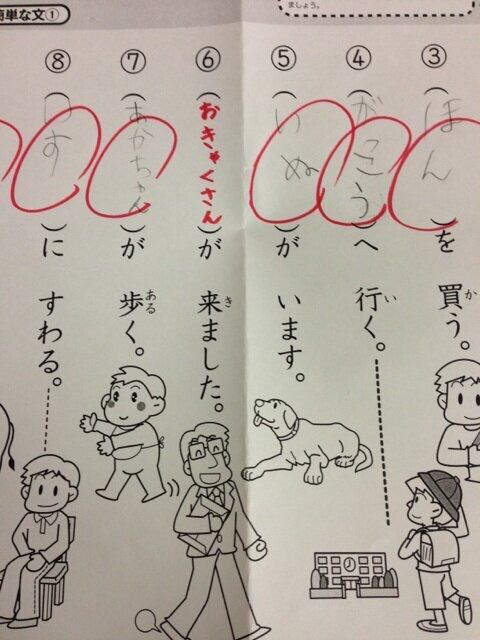 ましょう。
簡単な文①
③(ほん)を買(か)う。
④(がこう)へ行(い)く。
⑤(いぬ)がいます。
⑥(おきゃくさん)が来(き)ました。
⑦(あかちゃん)が歩(ある)く。
⑧(いす)にすわる。